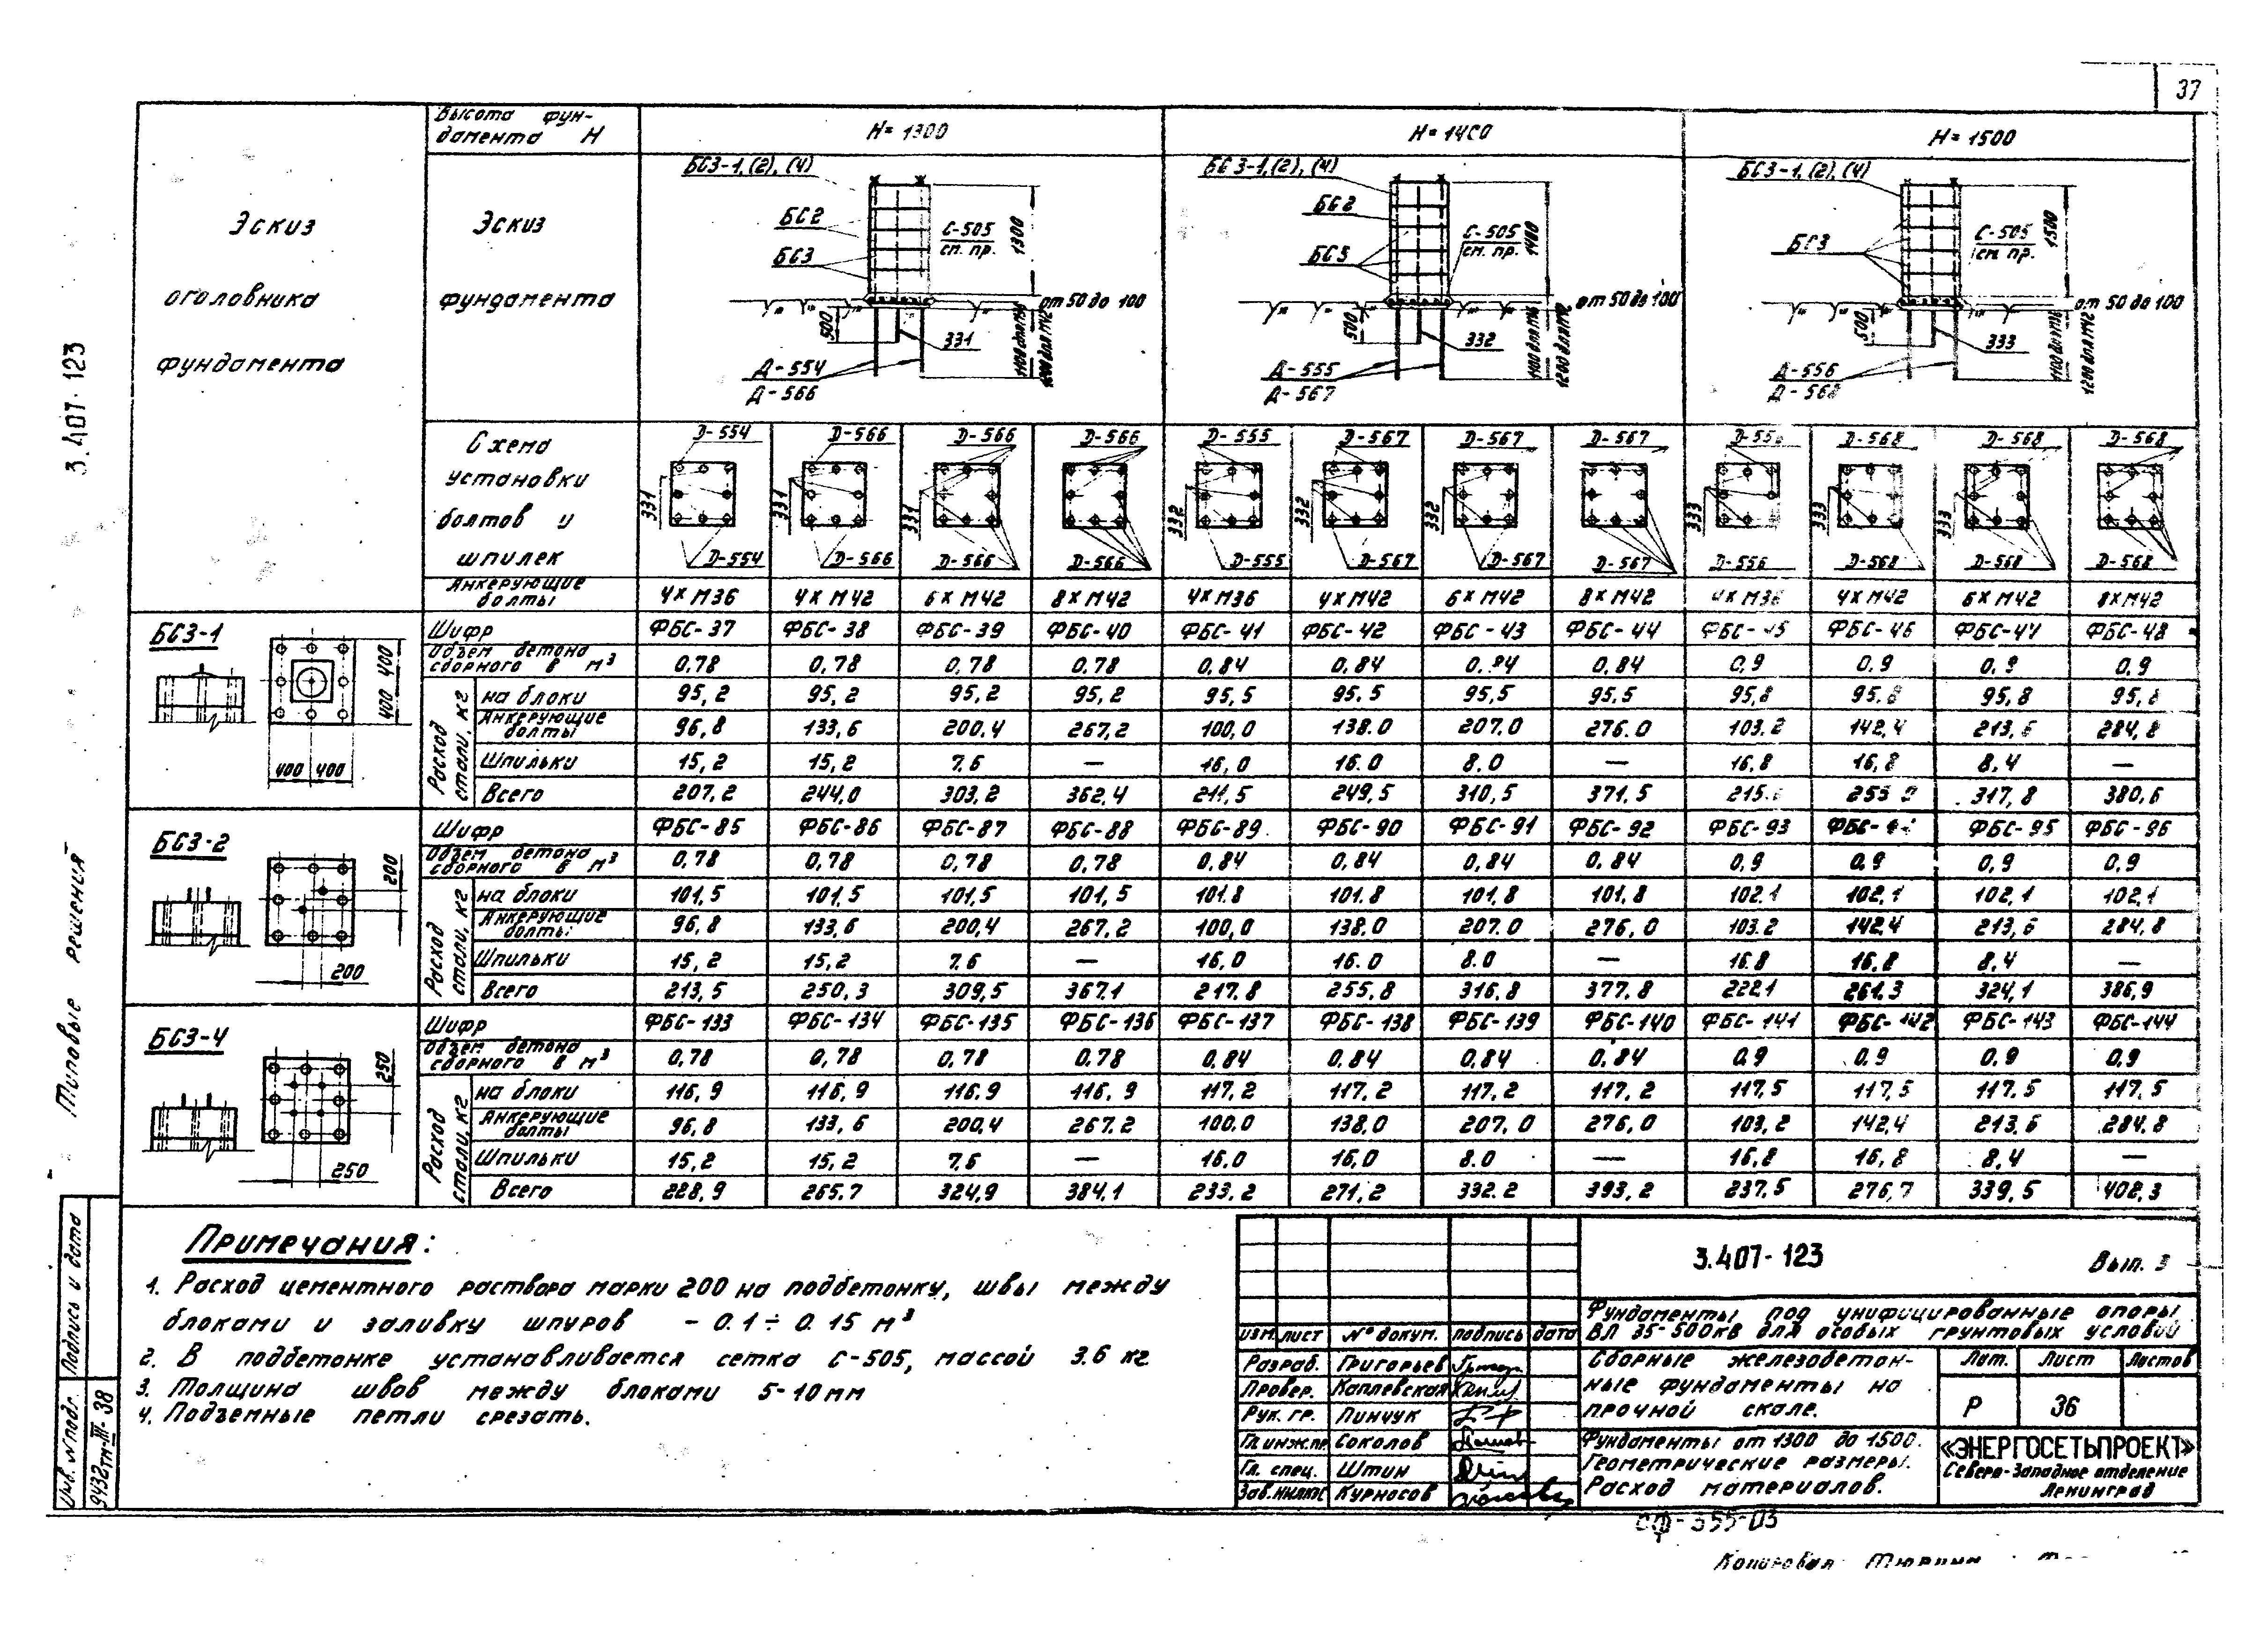 37
Высота фун-
дамента Н
Н= 1300
Н= 1400
Н= 1500
Эскиз
оголовника
фундамента
Эскиз
фундамента
БС3-1,(2),(4)
БС2
БС3
С-505
см. пр.
1300
от 50 до 100
500
331
1100 для М36
1200 для М42
Д-554
Д-566
БС3-1,(2),(4)
БС2
БС3
С-505
см. пр.
1400
от 50 до 100
500
332
1200 для М42
Д-555
Д-567
БС3-1,(2),(4)
БС3
С-505
см. пр.
1500
от 50 до 100
500
333
1200 для М42
Д-556
Д-568
Схема
установки
болтов и
шпилек
Д-554 Д-566 Д-566 Д-566 Д-555 Д-567 Д-567 Д-567 Д-556 Д-568 Д-568 Д-568
331 331 331 332 332 332 333 333 333
Д-554 Д-566 Д-566 Д-566 Д-555 Д-567 Д-567 Д-567 Д-556 Д-568 Д-568 Д-568
Анкерующие
болты
4×М36 4×М42 6×М42 8×М42 4×М36 4×М42 6×М42 8×М42 4×М36 4×М42 6×М42 8×М42
БС3-1
400 400
400 400
Шифр ФБС-37 ФБС-38 ФБС-39 ФБС-40 ФБС-41 ФБС-42 ФБС-43 ФБС-44 ФБС-45 ФБС-46 ФБС-47 ФБС-48
Объем бетона
сборного в м³ 0,78 0,78 0,78 0,78 0,84 0,84 0,84 0,84 0,9 0,9 0,9 0,9
Расход
стали, кг
на блоки 95,2 95,2 95,2 95,2 95,5 95.5 95,5 95.5 95,8 95.8 95,8 95,8
Анкерующие
болты 96,8 133,6 200,4 267,2 100,0 138.0 207.0 276.0 103.2 142,4 213,6 284,8
Шпильки 15,2 15,2 7.6 — 16,0 16.0 8.0 — 16,8 16,8 8.4 —
Всего 207,2 244,0 303,2 362,4 211,5 249,5 310,5 371.5 215.8 255 317,8 380,6
БС3-2
200
200
Шифр ФБС-85 ФБС-86 ФБС-87 ФБС-88 ФБС-89 ФБС-90 ФБС-91 ФБС-92 ФБС-93 ФБС-94 ФБС-95 ФБС-96
Объем бетона
сборного в м³ 0,78 0,78 0,78 0,78 0.84 0,84 0,84 0.84 0,9 0,9 0,9 0,9
Расход
стали, кг
на блоки 101,5 101,5 101,5 101,5 101.8 101.8 101,8 101,8 102.1 102,1 102,1 102,1
Анкерующие
болты 96,8 133,6 200,4 267,2 100,0 138,0 207.0 276,0 103.2 142,4 213,6 284,8
Шпильки 15,2 15,2 7.6 — 16,0 16.0 8.0 — 16.8 16,8 8,4 —
Всего 213,5 250,3 309,5 367.1 217.8 255,8 316,8 377.8 222.1 261.3 324,1 386,9
БС3-4
250
250
Шифр ФБС-133 ФБС-134 ФБС-135 ФБС-136 ФБС-137 ФБС-138 ФБС-139 ФБС-140 ФБС-141 ФБС-142 ФБС-143 ФБС-144
Объем бетона
сборного в м³ 0,78 0,78 0,78 0.78 0,84 0,84 0,84 0,84 0,9 0,9 0.9 0,9
Расход
стали, кг
на блоки 116,9 116,9 116.9 116,9 117,2 117,2 117.2 117,2 117,5 117,5 117.5 117,5
Анкерующие
болты 96,8 133,6 200,4 267.2 100.0 138,0 207,0 276,0 103,2 142,4 213.6 284.8
Шпильки 15,2 15,2 7,6 — 16.0 16,0 8.0 — 16,8 16,8 8,4 —
Всего 228,9 265.7 324,9 384,1 233,2 271,2 332.2 393,2 237.5 276,7 339,5 402,3
Примечания:
1. Расход цементного раствора марки 200 на подбетонку, швы между
блоками и заливку шпуров – 0.1÷0.15 м³
2. В подбетонке устанавливается сетка С-505, массой 3.6 кг
3. Толщина швов между блоками 5-10мм
4. Подъемные петли срезать.
3.407-123 Вып. 3
Фундаменты под унифицированные опоры
ВЛ 35-500кв для особых грунтовых условий
изм. лист № докум. подпись дата
Разраб. Григорьев
Провер. Каплевская
Рук. гр. Пинчук
Гл.инж.пр. Соколов
Гл. спец. Штин
Зав.НИЛКС Курносов
Сборные железобетон-
ные фундаменты на
прочной скале.
Лит. Лист Листов
Р 36
Фундаменты от 1300 до 1500.
Геометрические размеры.
Расход материалов.
«ЭНЕРГОСЕТЬПРОЕКТ»
Северо-Западное отделение
Ленинград
3.407-123
Типовые решения
Подпись и дата
Инв. № подл.
9432тм-III-38
сф-355-03
Копировал